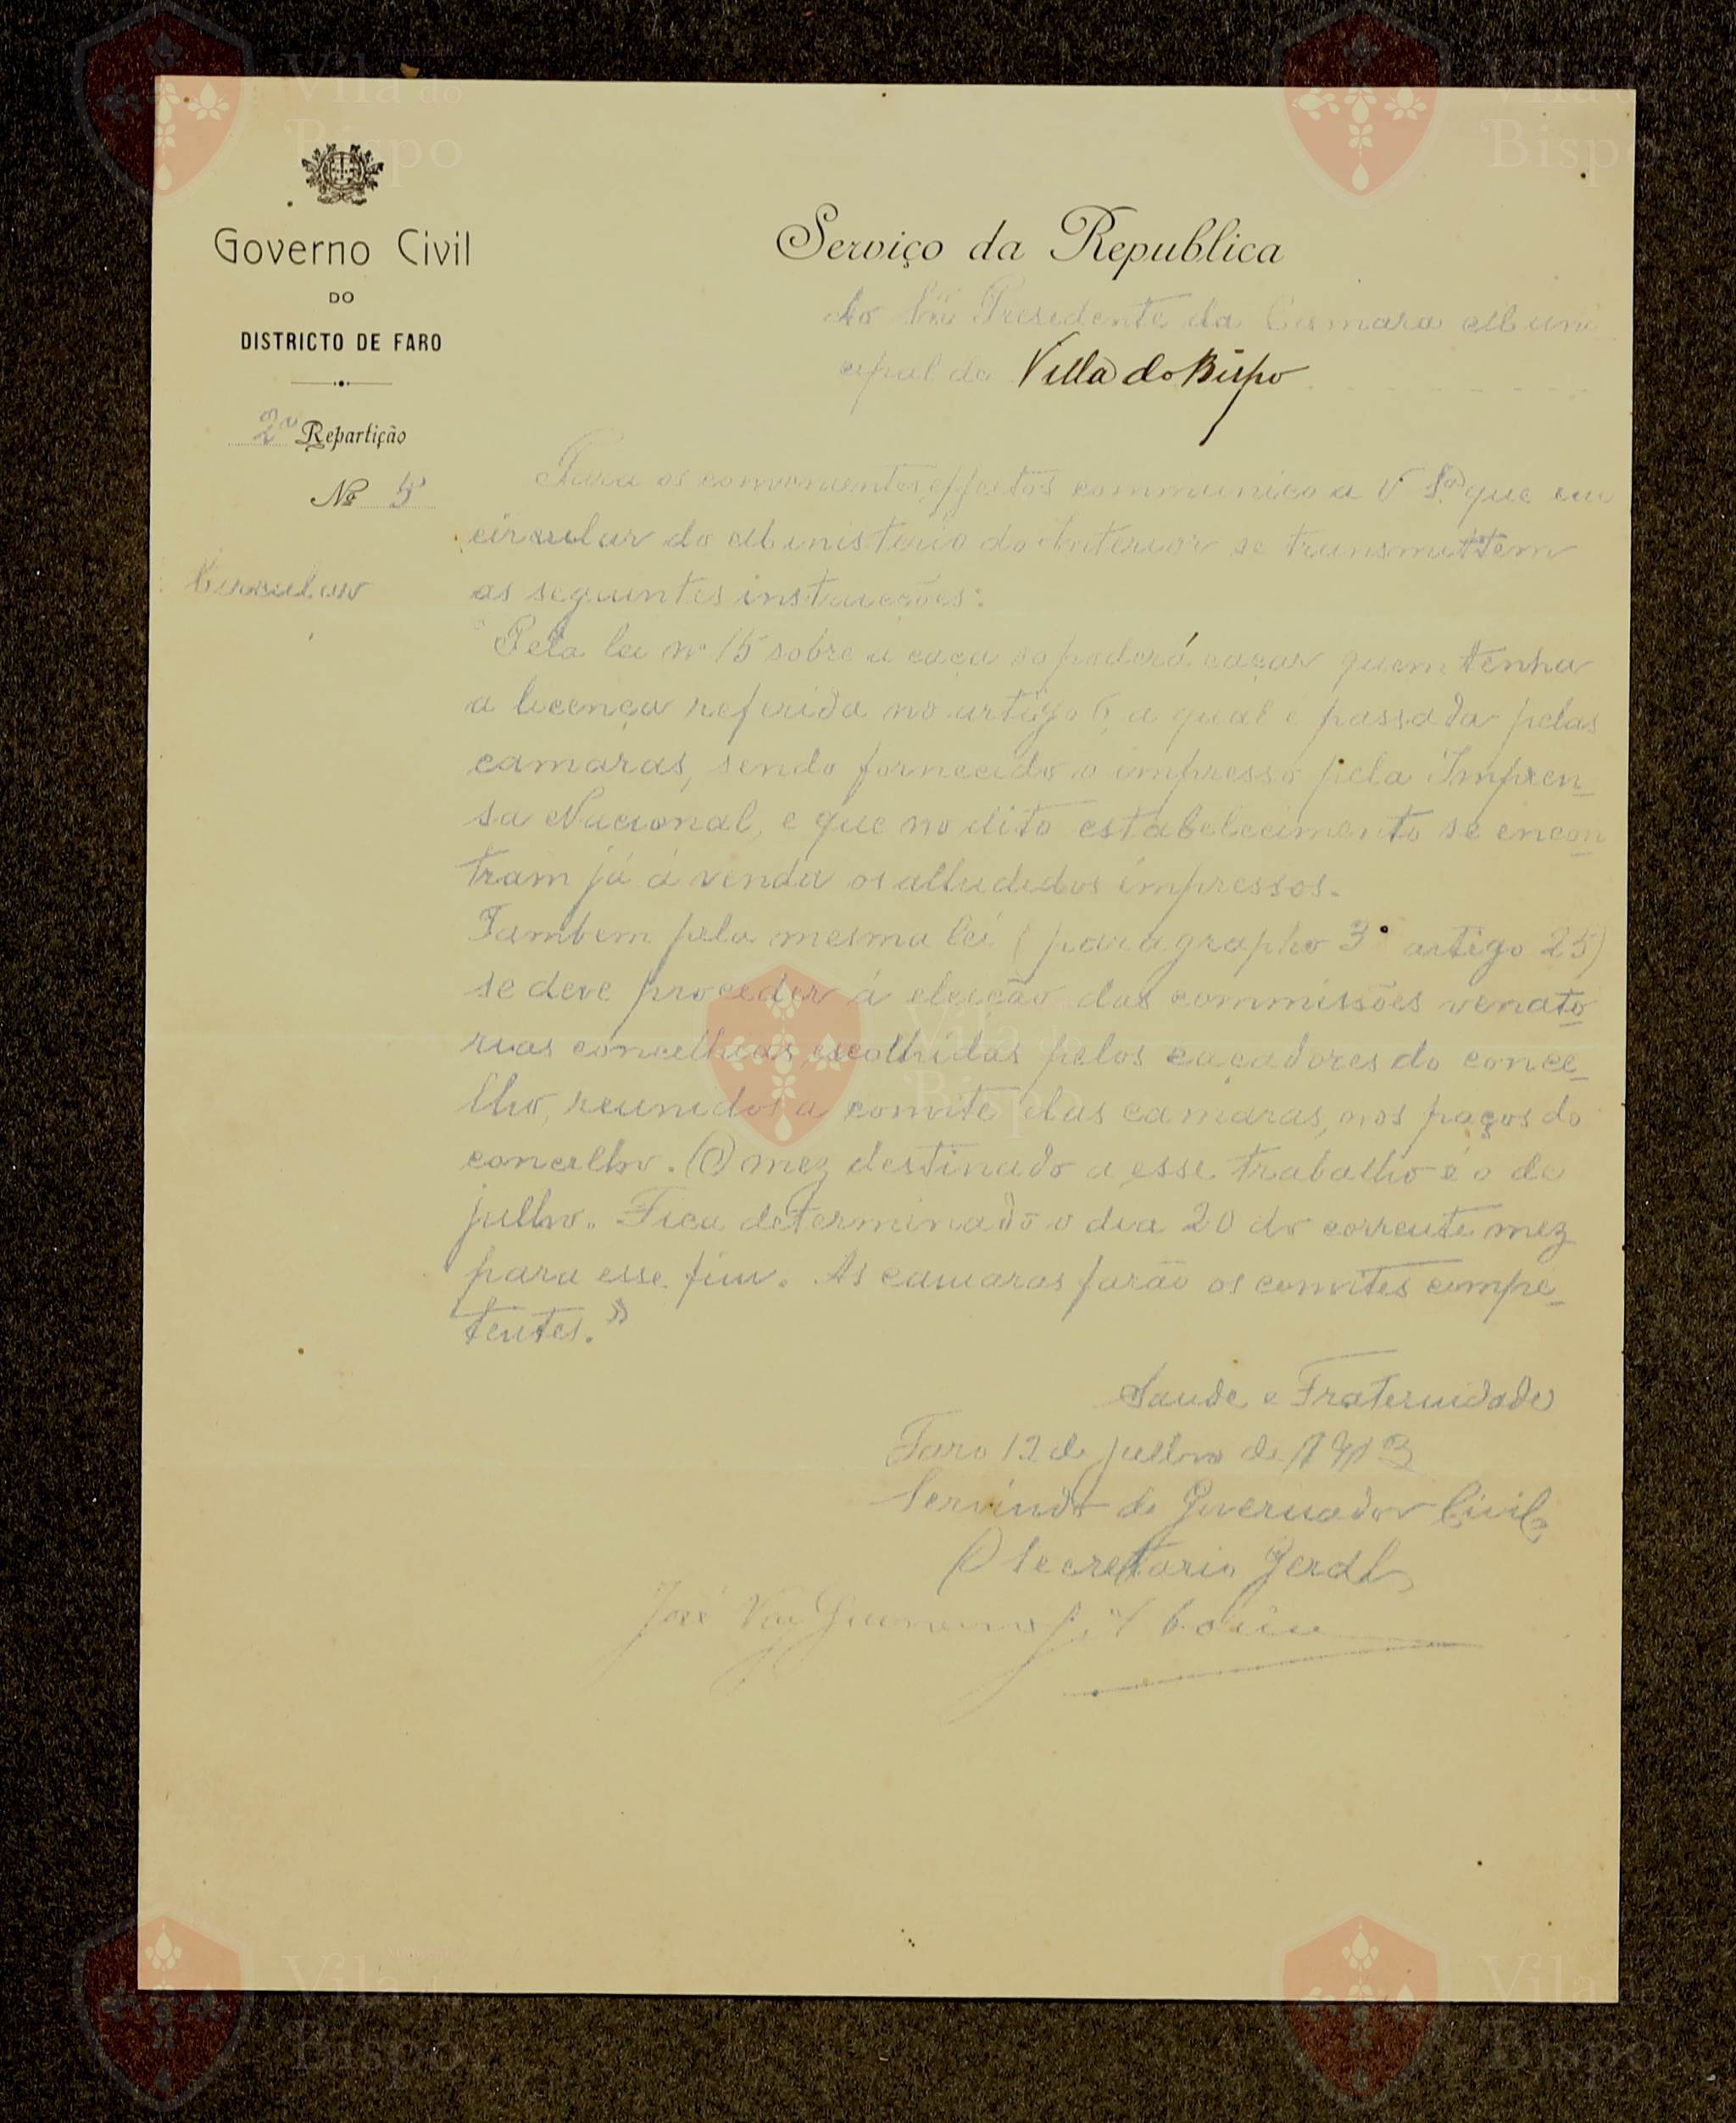 Governo Civil
DO
DISTRICTO DE FARO
2ª Repartição
Nº 5
Circular
Serviço da Republica
Ao Snr Presidente da Camara Muni
cipal de Villa do Bispo
Para os convenientes effeitos communico a V. S.ª que em
circular do Ministerio do Interior se transmittem
as seguintes instrucções:
"Pela lei nº 15 sobre a caça só poderá caçar quem tenha
a licença referida no artigo 6, a qual é passada pelas
camaras, sendo fornecido o impresso pela Impren-
sa Nacional, e que no dito estabelecimento se encon-
tram já á venda os alludidos impressos.
Tambem pela mesma lei (paragrapho 3º artigo 25)
se deve proceder á eleição das commissões venato-
rias concelhias, escolhidas pelos caçadores do conce-
lho, reunidos a convite das camaras, nos paços do
concelho. O mez destinado a esse trabalho é o de
julho. Fica determinado o dia 20 do corrente mez
para esse fim. As camaras farão os convites compe-
tentes."
Saude e Fraternidade
Faro 12 de julho de 1913
Servindo de Governador Civil
O Secretario Geral
José Vaz
Vila do
Bispo
Vila do
Bispo
Vila do
Bispo
Vila do
Bispo
Vila do
Bispo